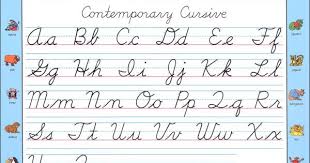 Contemporary Cursive
Aa Bb Cc Dd Ee Ff
Gg Hh Ii Jj Kk Ll
Mm Nn Oo Pp Qq Rr
Ss Tt Uu Vv Ww Xx